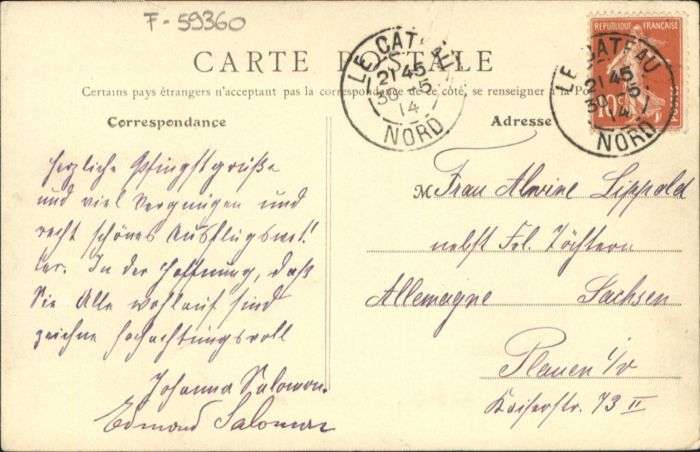 F-59360
CARTE POSTALE
Certains pays étrangers n'acceptant pas la correspondance de ce côté, se renseigner à la Po
Correspondance
Adresse
RÉPUBLIQUE FRANÇAISE
10c
POSTES
LE CATEAU
21 45
30 5
14
NORD
LE CATEAU
21 45
30 5
14
NORD
Herzliche Pfingstgrüße
und viel Vergnügen und
recht schönes Ausflugswet-
ter. In der Hoffnung, daß
Sie Alle wohlauf sind
zeichne hochachtungsvoll
Johanna Salomon.
Edmond Salomon
M Frau Alwine Lippold
nebst Frl. Töchtern
Allemagne Sachsen
Plauen i/v
Kaiserstr. 73 II